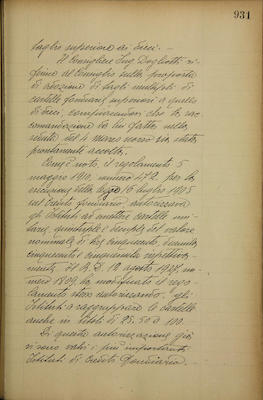 931
taglio superiore ai dieci. -
Il Consigliere Ing. Dogliotti ri-
ferisce al Consiglio sulla proposta
di creazione di tagli multipli di
cartelle fondiarie superiori a quelle
di dieci, confermando che la rac-
comandazione da lui fatta nella
seduta del 4 marzo scorso sia stata
prontamente accolta.
Com'è noto, il regolamento 5
maggio 1910, numero 472, per la
esecuzione della legge 16 luglio 1905
sul Credito fondiario autorizzava
gli Istituti ad emettere cartelle uni-
tarie, quintuple e decuple del valore
nominale di lire cinquecento,
cinquecento e cinquemila rispettiva-
mente. Il R. D. 12 agosto 1927, nu-
mero 1809, ha modificato il rego-
lamento stesso autorizzando gli
Istituti a raggruppare le cartelle
anche in titoli di 25, 50 e 100.
Di questa autorizzazione già
si sono valsi i più importanti
Istituti di Credito Fondiario.